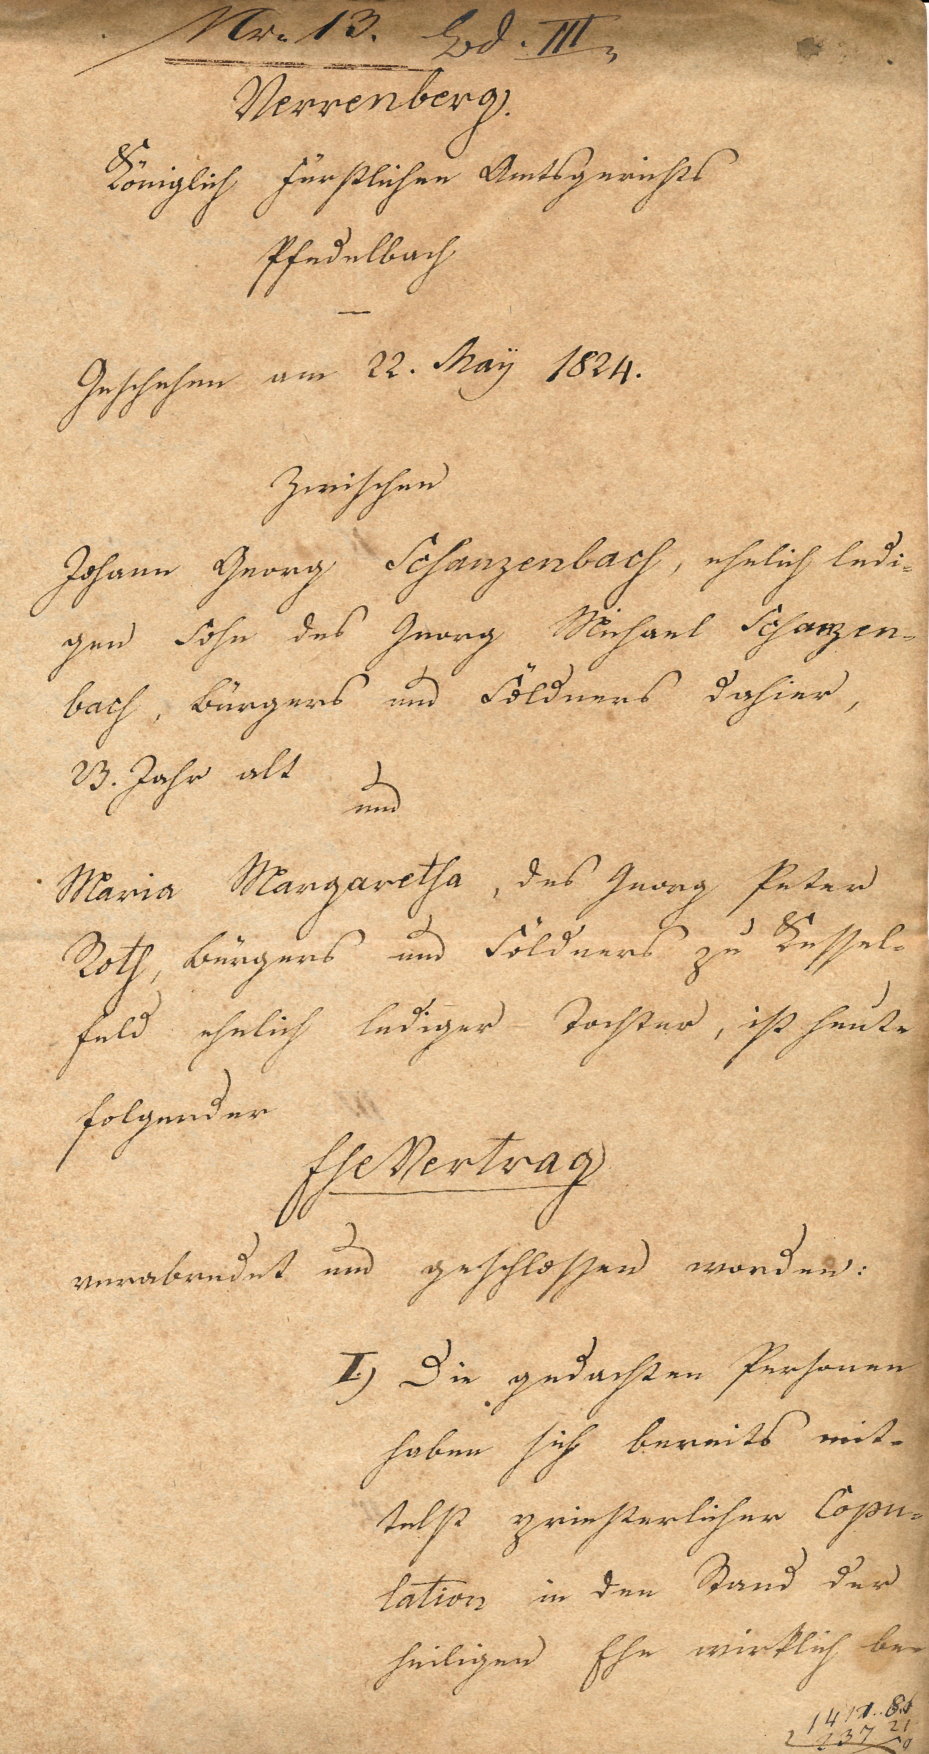 Nr. 13. Bd. III
Verrenberg.
Königlich Fürstlichen Amtsgerichts
Pfedelbach
Geschehen am 22. Maÿ 1824.
Zwischen
Johann Georg Schanzenbach, ehelich ledi-
gen Sohn des Georg Michael Schanzen-
bach, Bürgers und Söldners dahier,
23. Jahr alt
und
Maria Margaretha, des Georg Peter
Roth, Bürgers und Söldners zu Kessel-
feld ehelich lediger Tochter, ist heute
folgender
EheVertrag
verabredet und geschlossen worden:
I.) Die gedachten Personen
haben sich bereits mit-
telst priesterlicher Copu-
lation in den Stand der
heiligen Ehe wirklich be-